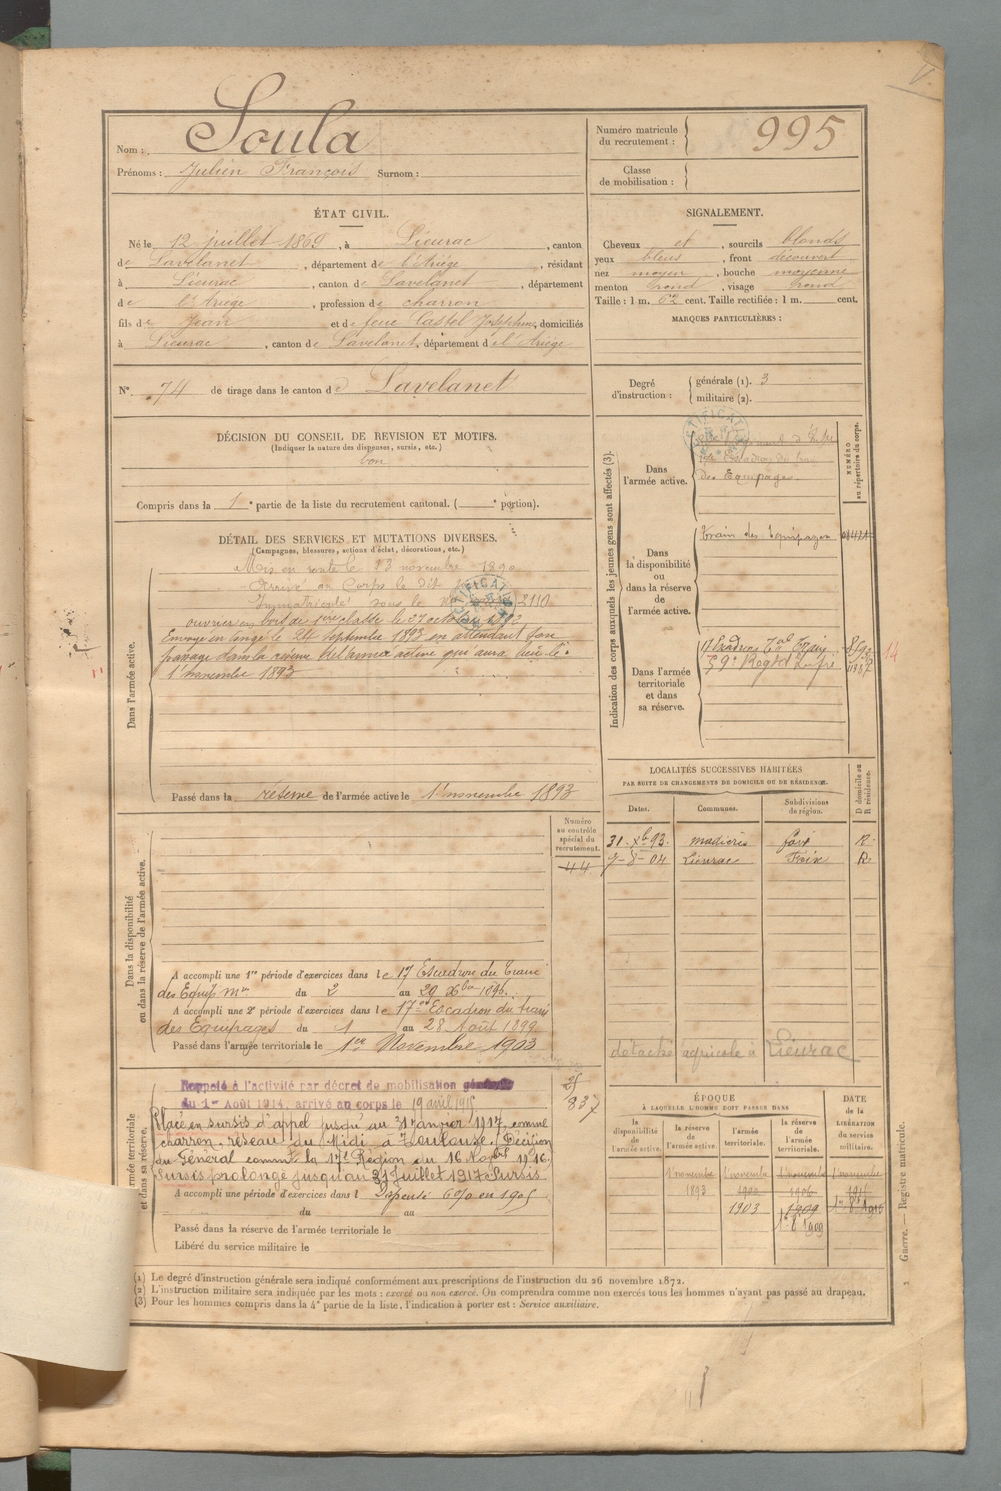 Nom : Soula
Prénoms : Julien François Surnom :
Numéro matricule du recrutement : 995
Classe de mobilisation :
ÉTAT CIVIL.
Né le 12 juillet 1869, à Lieurac, canton
de Lavelanet, département de l'Ariège, résidant
à Lieurac, canton de Lavelanet, département
de l'Ariège, profession de charron
fils de Jean et de feue Castel Josephine, domiciliés
à Lieurac, canton de Lavelanet, département de l'Ariège
N° 74 de tirage dans le canton de Lavelanet
SIGNALEMENT.
Cheveux et, sourcils blonds
yeux bleus, front découvert
nez moyen, bouche moyenne
menton rond, visage rond
Taille : 1 m. 62 cent. Taille rectifiée : 1 m. cent.
MARQUES PARTICULIÈRES :
Degré d'instruction : générale (1). 3
militaire (2).
DÉCISION DU CONSEIL DE REVISION ET MOTIFS.
(Indiquer la nature des dispenses, sursis, etc.)
bon
Compris dans la 1e partie de la liste du recrutement cantonal. ( e portion).
DÉTAIL DES SERVICES ET MUTATIONS DIVERSES.
(Campagnes, blessures, actions d'éclat, décorations, etc.)
Dans l'armée active.
Mis en route le 13 novembre 1890
Arrivé au Corps le dit
Immatriculé sous le 2110
ouvrier en bois de 1ère classe le 27 octobre 1892
Envoyé en congé le 24 septembre 1893 en attendant son
passage dans la réserve de l'armée active qui aura lieu le
1 novembre 1893
Passé dans la réserve de l'armée active le 1 novembre 1893
Indication des corps auxquels les jeunes gens sont affectés (3).
NUMÉRO au répertoire du corps.
Dans l'armée active.
des Equipages.
Dans la disponibilité ou dans la réserve de l'armée active.
Train des Equipages
Dans l'armée territoriale et dans sa réserve.
17 Escadron Tal
14
LOCALITÉS SUCCESSIVES HABITÉES
PAR SUITE DE CHANGEMENTS DE DOMICILE OU DE RÉSIDENCE.
D domicile ou R résidence.
Dates. Communes. Subdivisions de région.
31 Xb 93. R
7-8-04 Lieurac Foix R
détaché agricole à Lieurac
Dans la disponibilité ou dans la réserve de l'armée active.
Numéro au contrôle spécial du recrutement.
44
A accompli une 1re période d'exercices dans le 17 Escadron du Train
des Equip mres du 2 au 29
A accompli une 2e période d'exercices dans le 17me Escadron du train
des Equipages du 1 au 28 Août 1899
Passé dans l'armée territoriale le 1er Novembre 1903
Rappelé à l'activité par décret de mobilisation générale
du 1er Août 1914, arrivé au corps le 19 avril 1915
Placé en sursis d'appel jusqu'au 31 janvier 1917 comme
charron réseau du Midi à Toulouse. (Décision
du Général commt la 17e Région du 16 Novbre 1916.
Sursis prolongé jusqu'au 31 Juillet 1917. Sursis
A accompli une période d'exercices dans l Dispensé en 1905
du au
Passé dans la réserve de l'armée territoriale le
Libéré du service militaire le
837
ÉPOQUE
À LAQUELLE L'HOMME DOIT PASSER DANS
DATE de la LIBÉRATION du service militaire.
la disponibilité de l'armée active. la réserve de l'armée active. l'armée territoriale. la réserve de l'armée territoriale.
1 novembre 1 novembre 1 novembre 1 novembre
1893
1903 1909
1909
Guerre. — Registre matricule.
(1) Le degré d'instruction générale sera indiqué conformément aux prescriptions de l'instruction du 26 novembre 1872.
(2) L'instruction militaire sera indiquée par les mots : exercé ou non exercé. On comprendra comme non exercés tous les hommes n'ayant pas passé au drapeau.
(3) Pour les hommes compris dans la 4e partie de la liste, l'indication à porter est : Service auxiliaire.